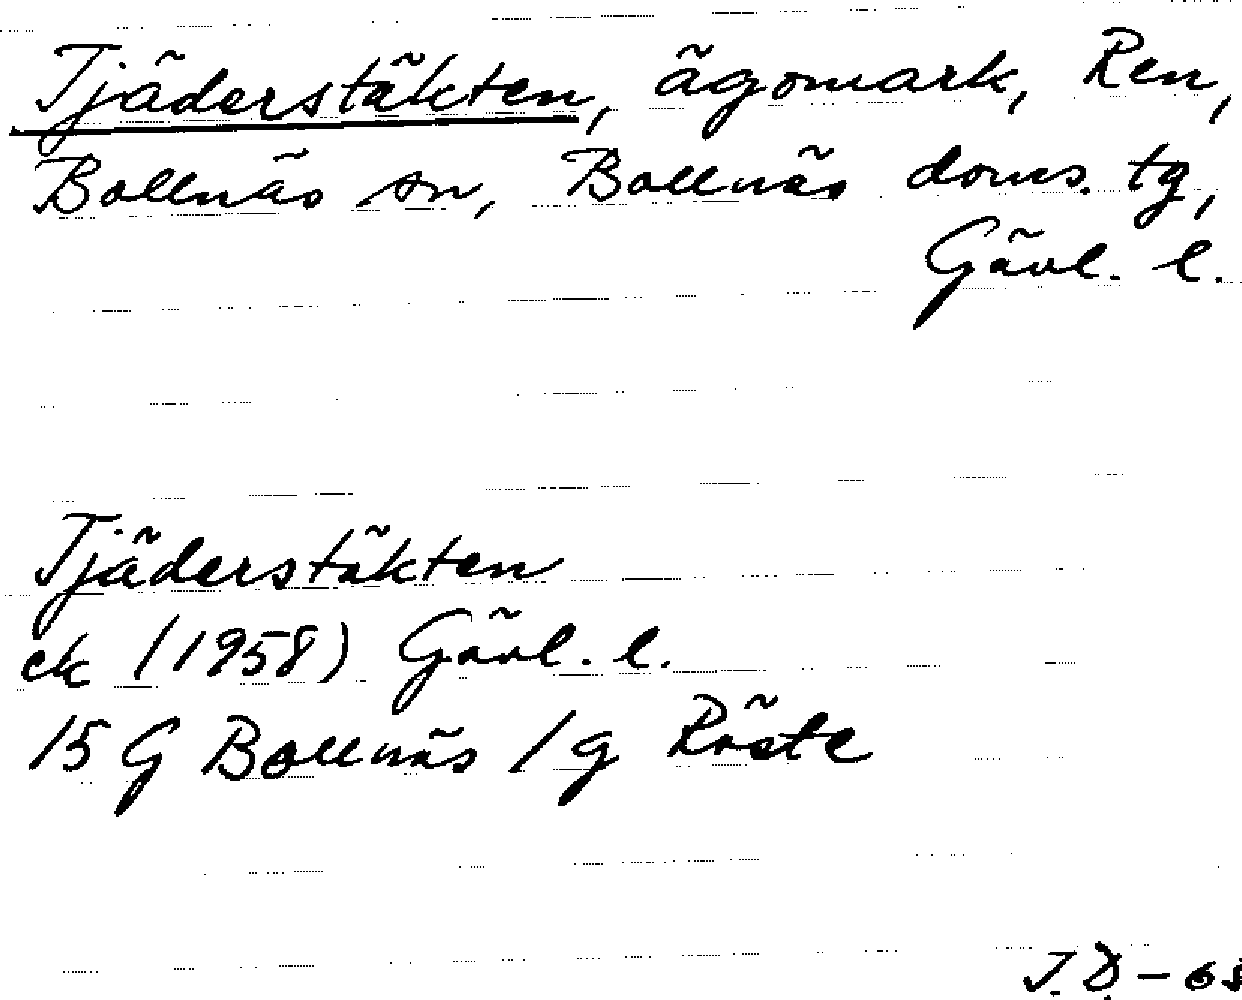 Tjäderstäkten, ägomark, Ren,
Bollnäs sn, Bollnäs doms. tg,
Gävl. l.
Tjäderstäkten
ek (1958) Gävl. l.
15 G Bollnäs / g Röste
J.D - 65